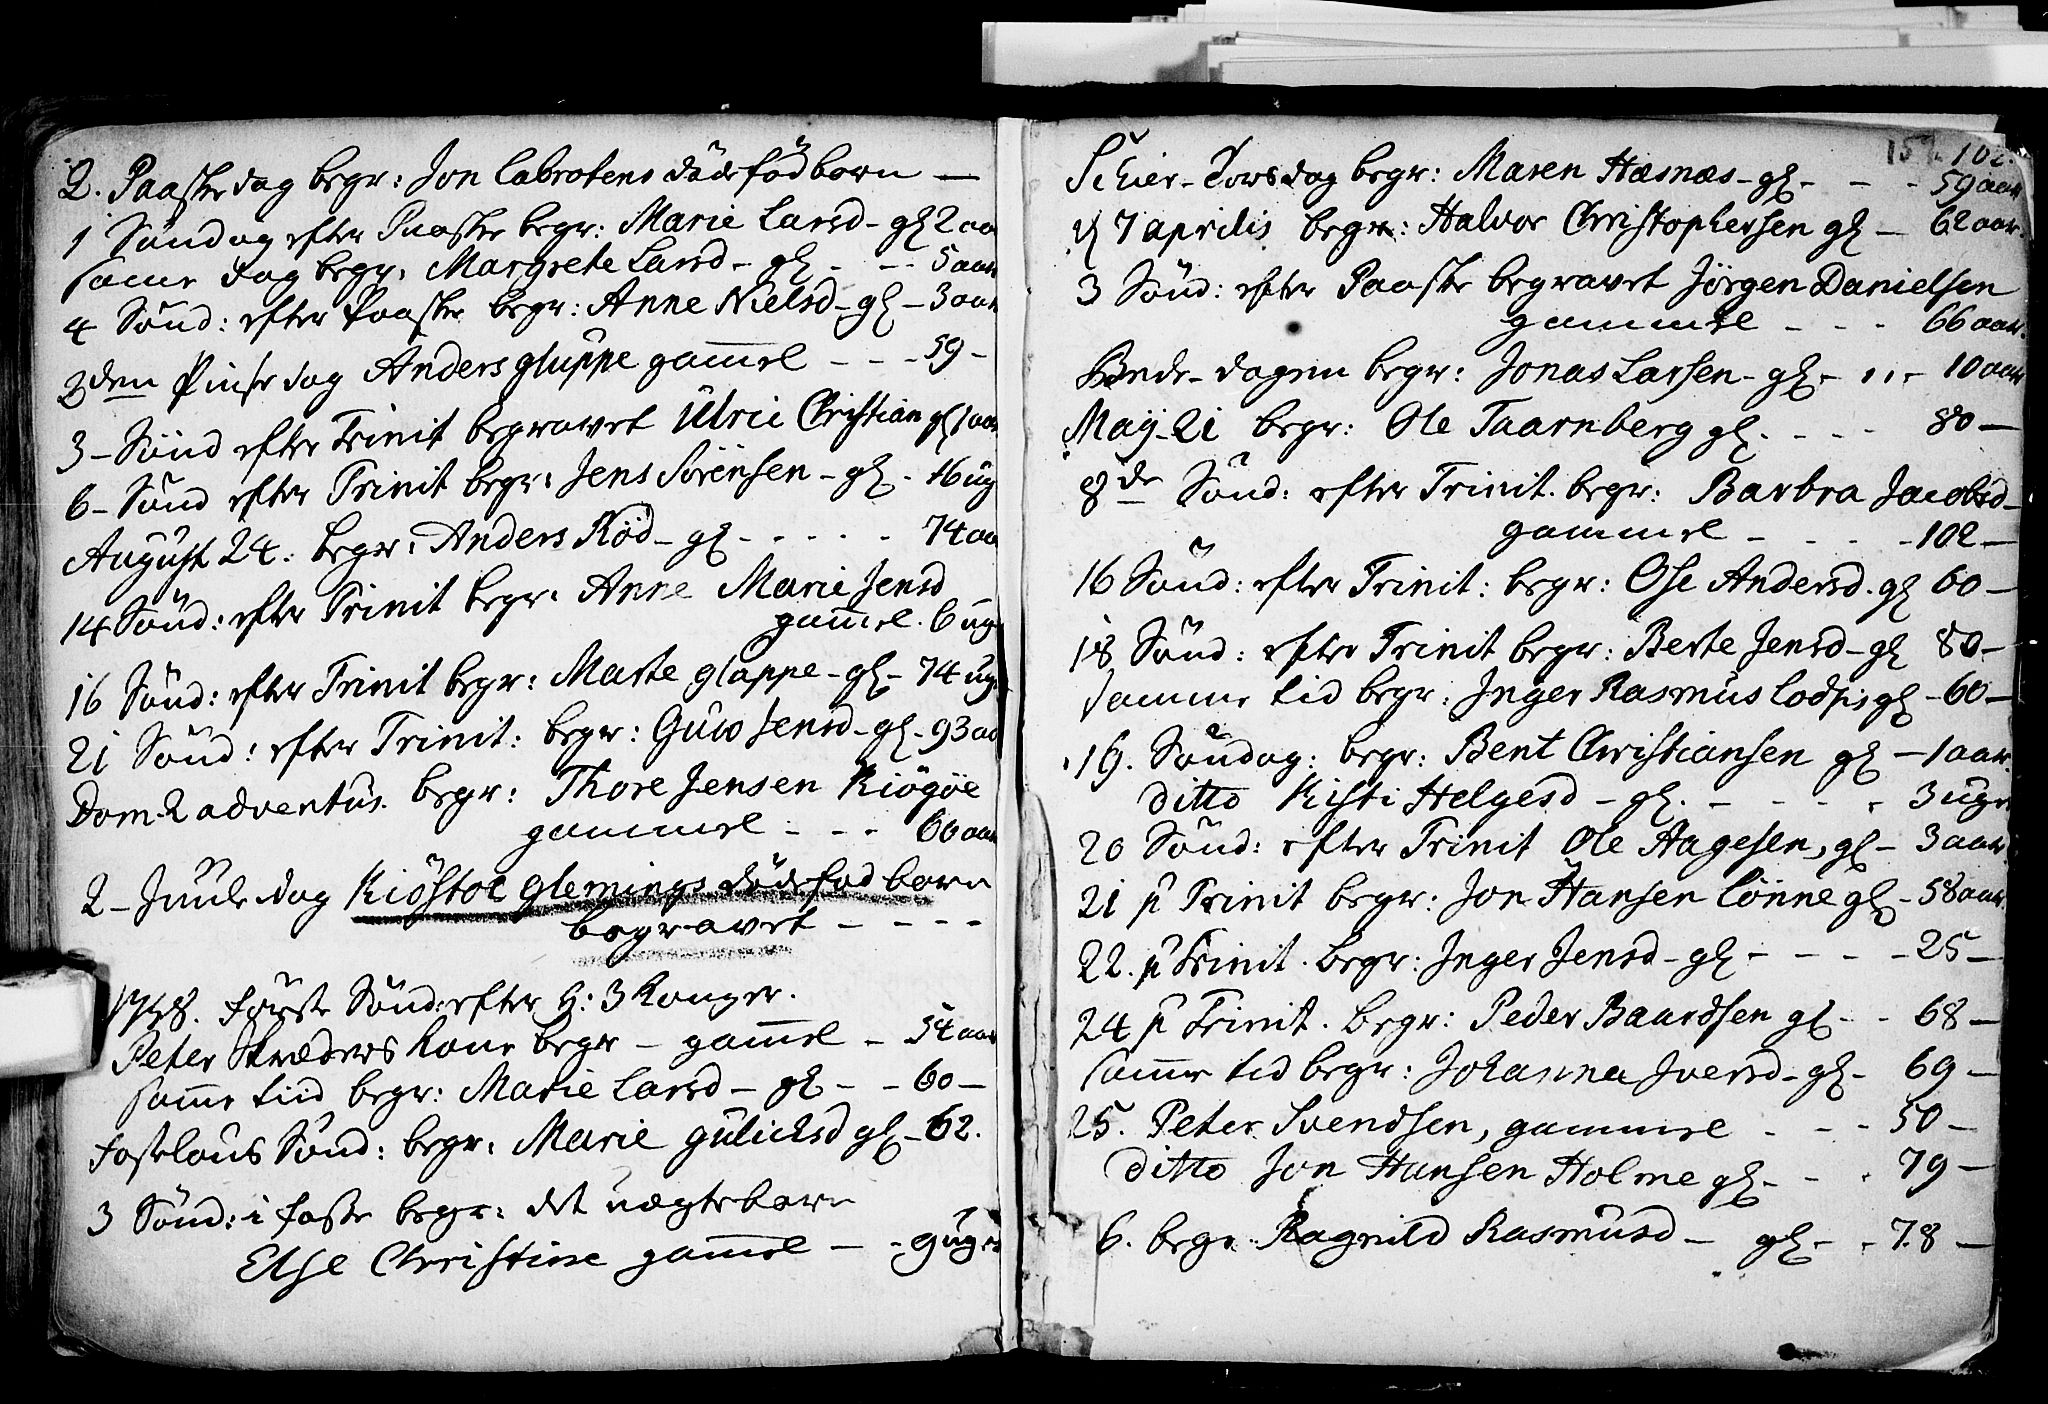 2. Paaskedag begr: Jon Labrotens dødefød barn —
1 Søndag efter Paaske begr: Marie Larsd - gl 2 aa
samme dag begr. Margrete Larsd - gl - - - 5 aar
4 Sønd: efter Paaske begr: Anne Nielsd - gl - 3 aar
2den Pinsedag Anders gluppe gammel - - - 59 -
3 - Sønd efter Trinit begravet Ulric Christian gl 1 aar
6 - Sønd efter Trinit begr: Jens Sörensen - gl - 16 ug
August 24. begr: Anders Röd - gl - - - - - 74 aa
14 Sønd: efter Trinit begr: Anne Marie Jensd
gammel. 6 uge
16 Sønd: efter Trinit begr: Marte glappe - gl - 74 ug
21 Sønd: efter Trinit: begr: Guro Jensd - gl - 93 aa
Dom. 2 adventus. begr: Thore Jensen Kiögöe
gammel - - - 60 aar
2 - Juule dag Kiöstol Glemings dødefød barn
begravet - - - -
1758. første Sønd: efter H: 3 Konger.
Peter Skræders Kone begr - gammel - 54 aar
samme tiid begr: Marie Larsd - gl - - 60 -
fastelaus Sønd: begr: Marie gulichsd gl - 62.
3 Sønd: i faste begr: det uægte barn
Else Christine gammel - - 9 uger
157. 102.
Schier - Torsdag begr: Maren Hæsnæs - gl - - - 59 aar
d 7 aprilis begr: Halvor Christophersen gl - 62 aar.
3 Sønd: efter Paaske begravet Jörgen Danielsen
gammel - - - 66 aar.
Bede - dagen begr: Jonas Larsen - gl - - - 10 aar
Maij - 21 begr: Ole Taarnberg gl. - - - 80 -
8de Sønd: efter Trinit. begr: Barbra Jacobsd -
gammel - - - - 102 -
16 Sønd: efter Trinit: begr: Ose Andersd. gl 60 -
18 Sønd: efter Trinit begr: Berte Jensd - gl 80 -
samme tid begr: Inger Rasmus Lodsis gl - 60 -
19. Søndag: begr: Bent Christiansen gl - 1 aar.
ditto Kisti Helgesd - gl. - - - - 3 uger
20 Sønd: efter Trinit Ole Aagesen, gl - 3 aar
21 p Trinit begr: Jon Hansen Lönne gl - 58 aar.
22. p Trinit. begr: Inger Jensd - gl - - - - 25 -
24 p Trinit. begr: Peder Baardsen gl - - 68 -
samme tid begr: Johanna Iversd - gl - 69 -
25. Peter Svendsen, gammel - - - 50 -
ditto Jon Hansen Holme gl - - - 79 -
6. begr. Ragnild Rasmusd - gl - - 78 -